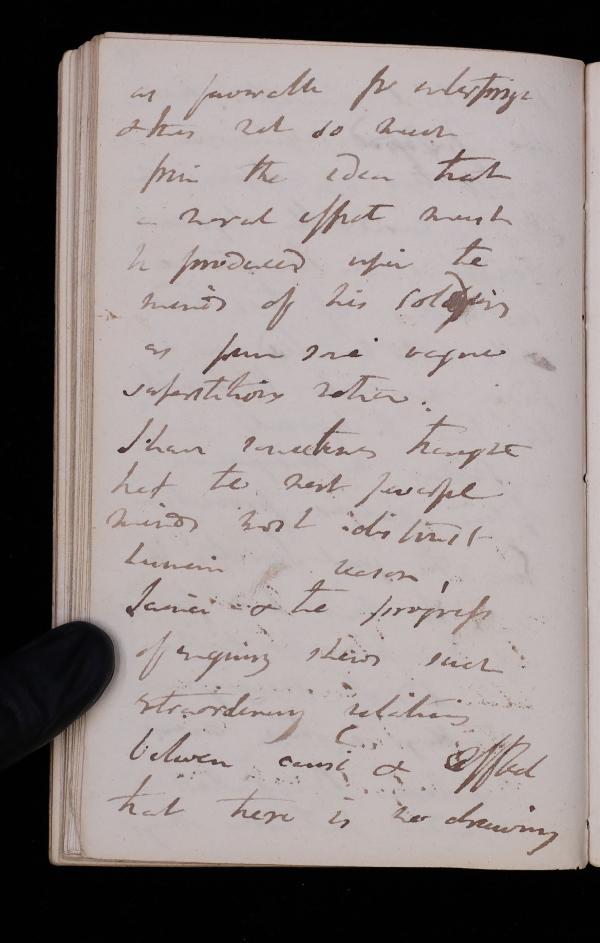 as favorable for enterprizes
& this not so much
from the idea that
a moral effect must
be produced upon the
minds of his soldiers
as from some vague
superstitious notion.
I have sometimes thought
that the most powerful
minds most distrust
human reason,
Science & the progress
of enquiry shews such
extraordinary relations
between cause & effect
that there is no drawing